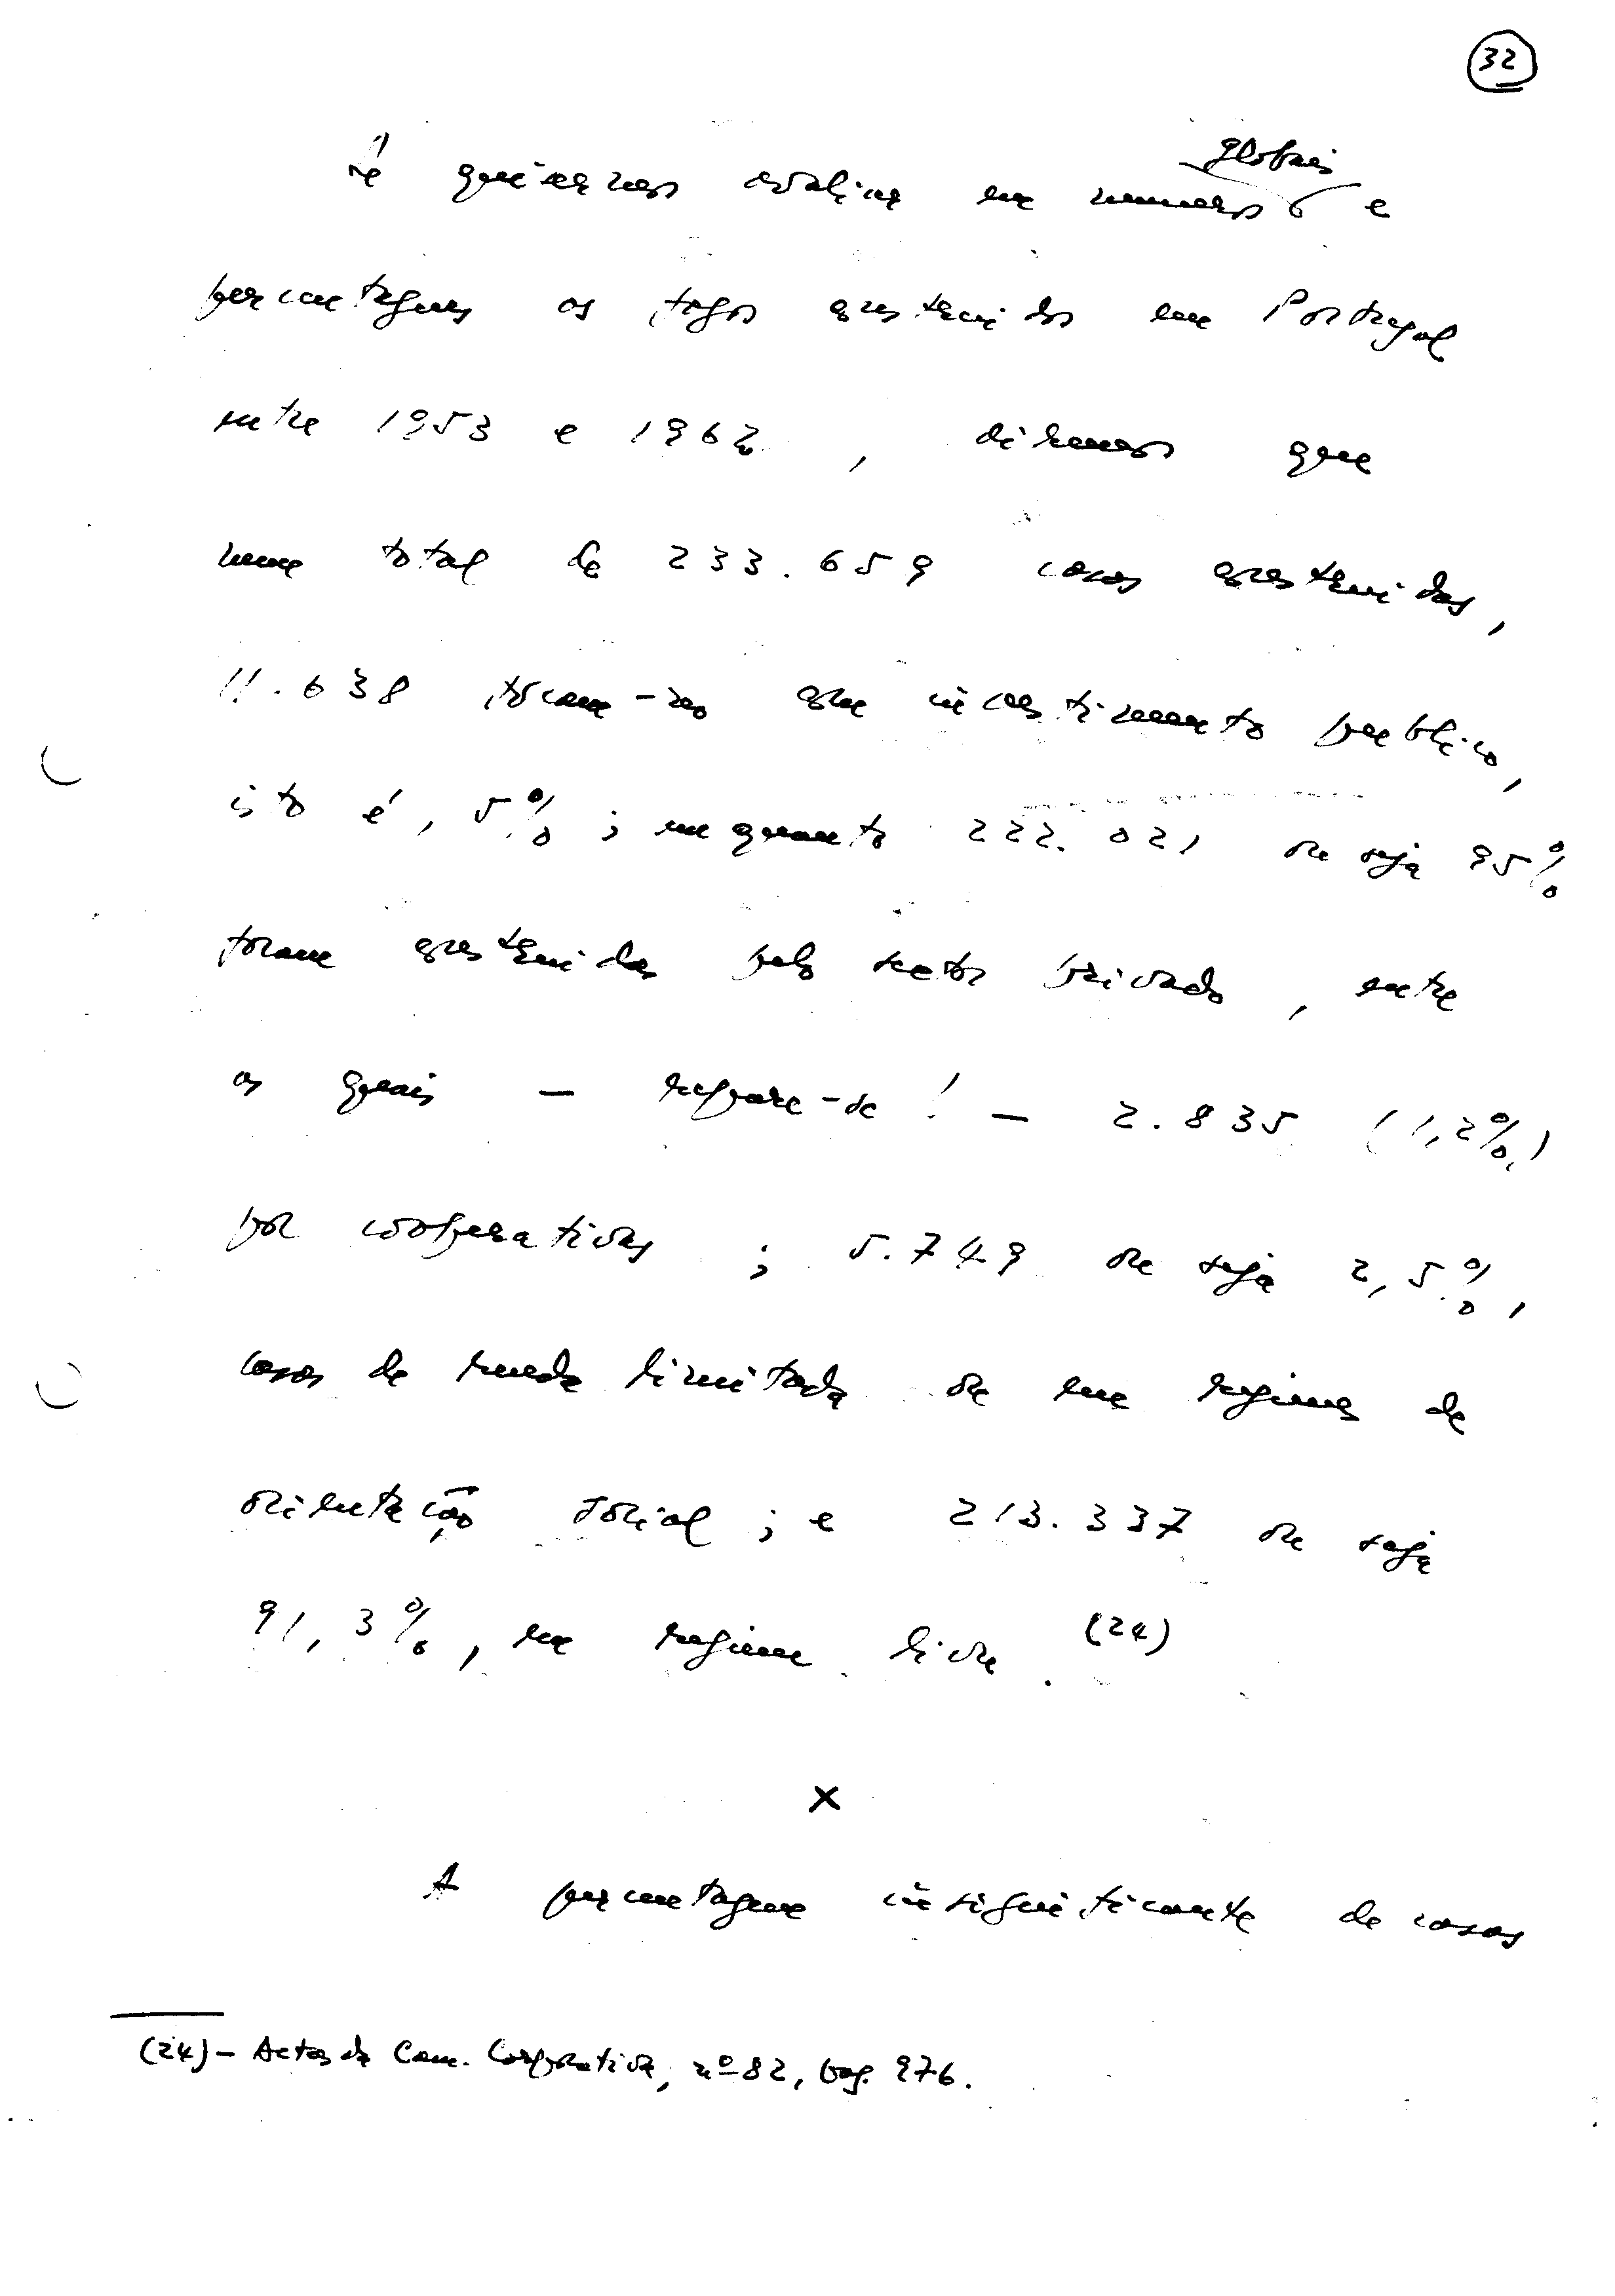 32
Se quisermos avaliar em numeros globais e
percentagens os fogos construidos em Portugal
entre 1953 e 1962, diremos que
num total de 233.659 casas construidas,
11.638 foram-no com investimento publico,
isto é, 5%; enquanto 222.021 ou seja 95%
foram construidas pelo sector privado, entre
os quais – repare-se! – 2.835 (1,2%)
por cooperativas; 5.749 ou seja 2,5%,
casas de renda limitada ou em regime de
orientação social; e 213.337 ou seja
91,3%, em regime livre. (24)
x
A percentagem insignificante de casas
(24) – Actas da Cam. Corporativa, nº 82, pag. 976.